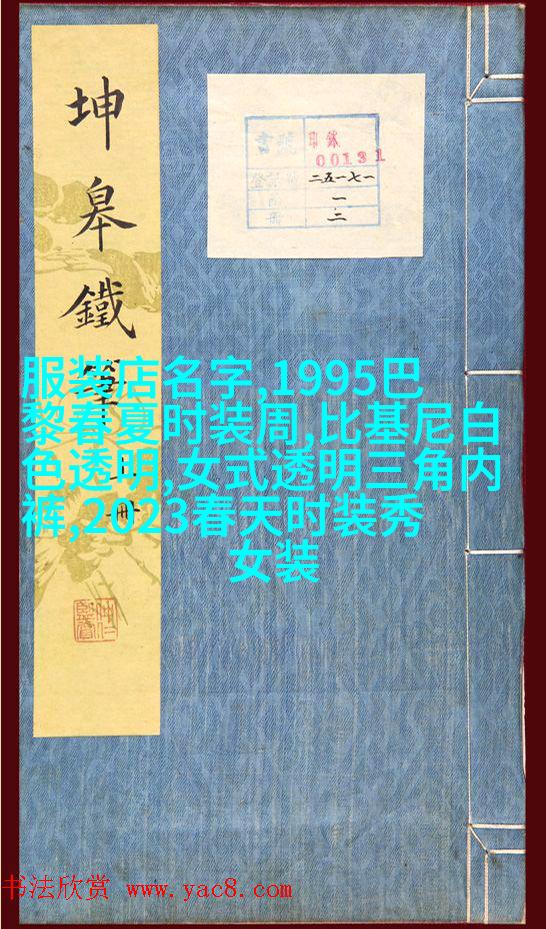 坤皋鐵筆
上冊
書號 印鉥
00131
二五一七一
一
冊 二
服装店名字,1995巴
黎春夏时装周,比基尼白
色透明,女式透明三角内
裤,2023春天时装秀
女装
书法欣赏 www.yac8.com